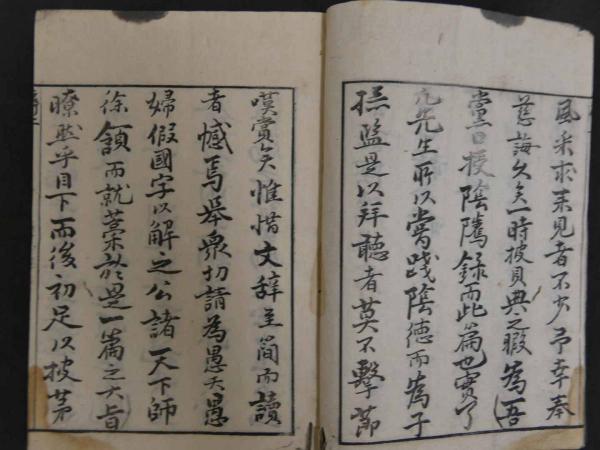 風采求来見者不少予幸奉
慈誨久矣一時披貝典之暇為吾
黨口授陰隲録而此篇也實了
凡先生所以嘗践陰徳而為子
孫監是以拜聽者莫不擊節
嘆賞矣惟惜文辞至簡而讀
者憾焉舉衆切請為愚夫愚
婦假國字以解之公諸天下師
徐頷而就藁於是一篇之大旨
瞭然乎目下而後初足以披茅